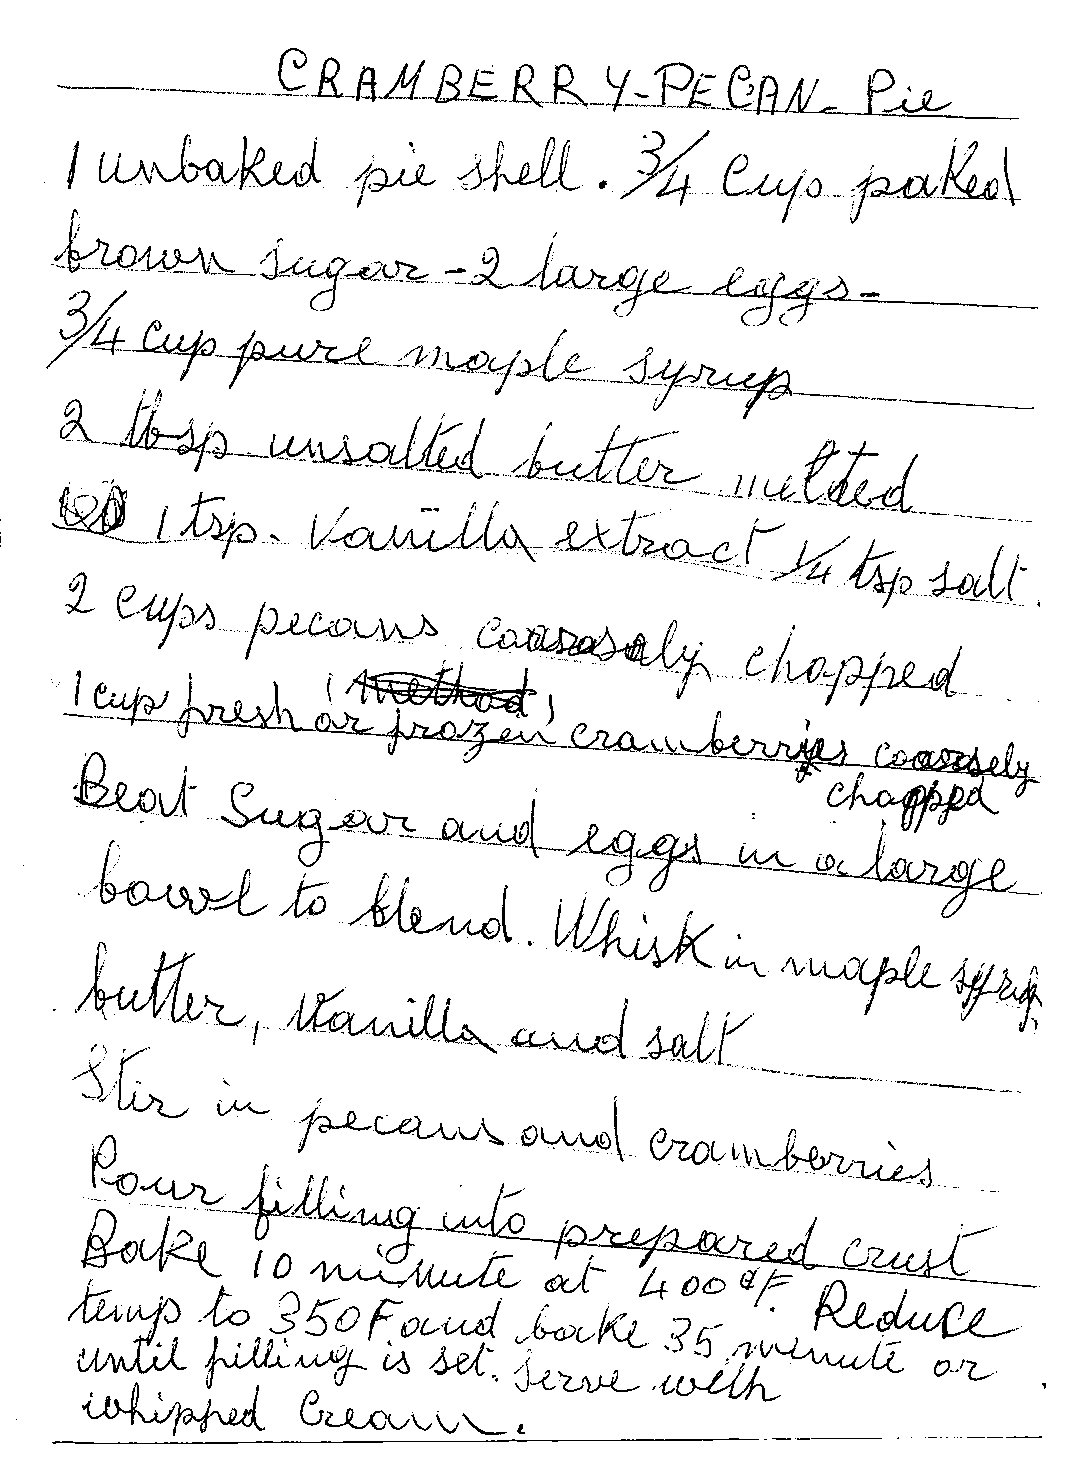 CRAMBERRY-PECAN- Pie
1 unbaked pie shell. 3/4 Cup paked
brown sugar - 2 large eggs -
3/4 cup pure maple syrup
2 tbsp unsalted butter melted
1 tsp. Vanilla extract 1/4 tsp salt.
2 cups pecans coarsely chopped
(method)
1 cup fresh or frozen cramberries coarsely
chopped
Beat Sugar and eggs in a large
bowl to blend. Whisk in maple syrup,
butter, Vanilla and salt
Stir in pecans and cramberries
Pour filling into prepared crust
Bake 10 minute at 400°F. Reduce
temp to 350F and bake 35 minute or
until filling is set. Serve with
whipped Cream.